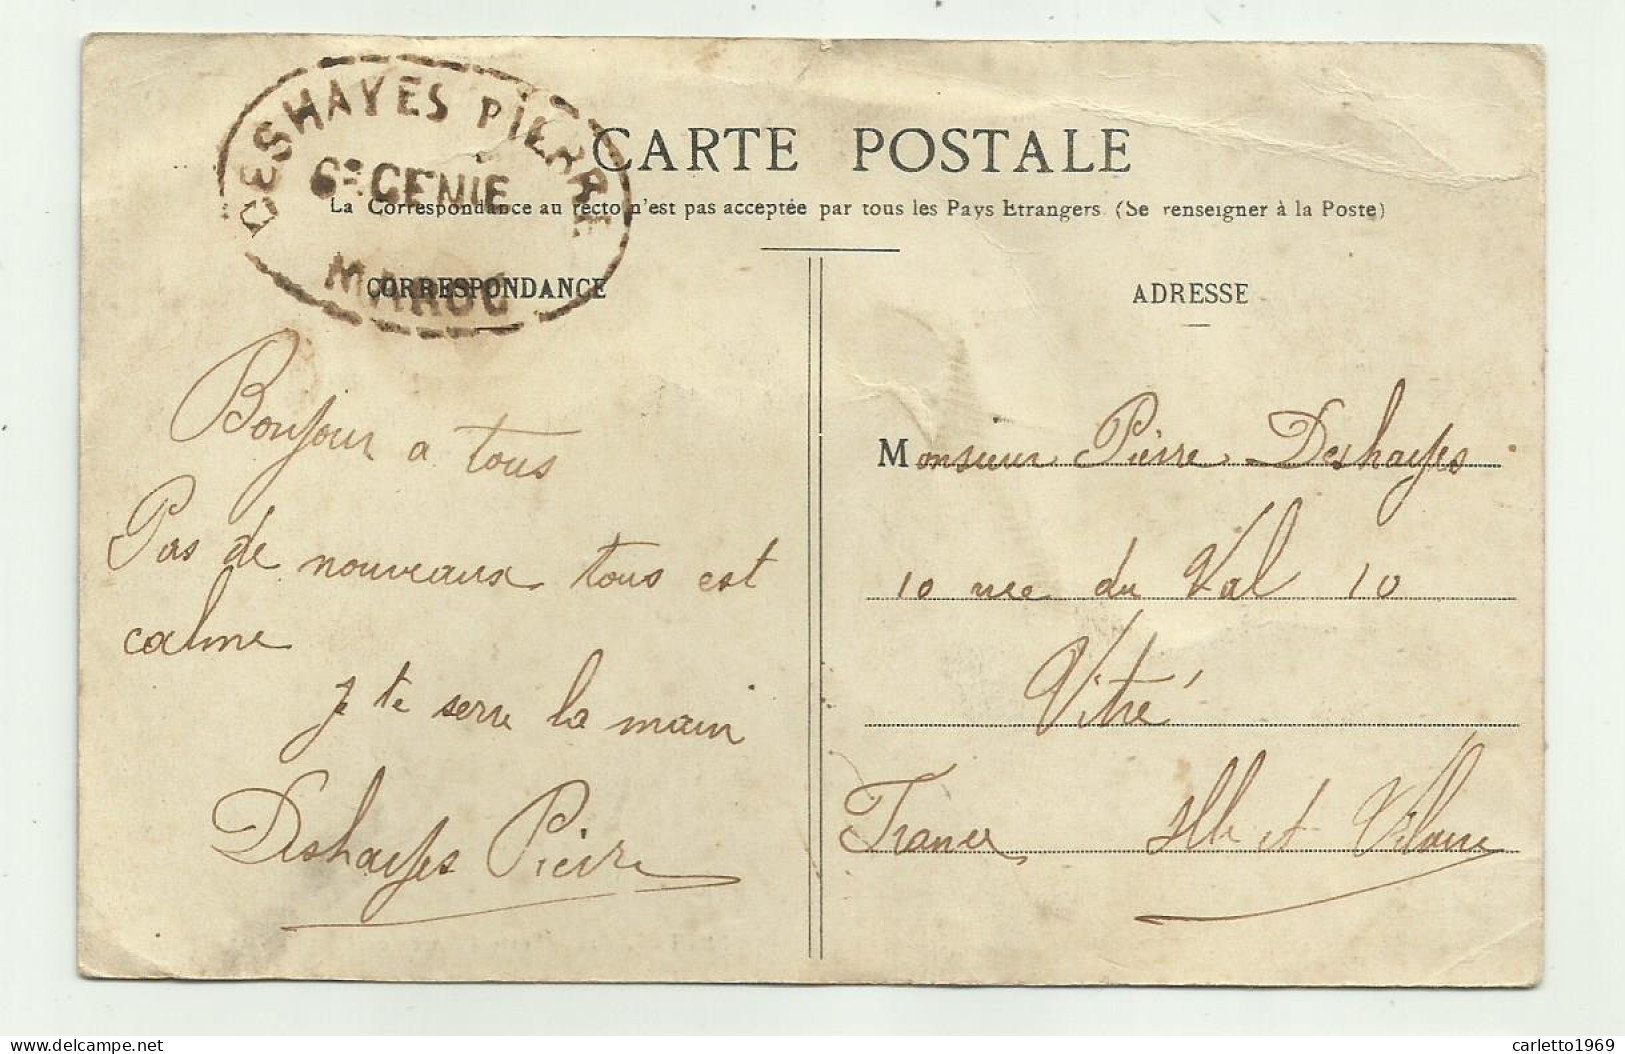 DESHAYES PIERRE
6e GENIE
MAROC
CARTE POSTALE
La Correspondance au recto n'est pas acceptée par tous les Pays Etrangers (Se renseigner à la Poste)
CORRESPONDANCE
Bonjour a tous
Pas de nouveaux tous est
calme
J te serre la main
Deshayes Pierre
ADRESSE
Monsieur Pierre Deshayes
10 rue du Val 10
Vitré
France Ille et Vilaine
carletto1969
delcampe.net